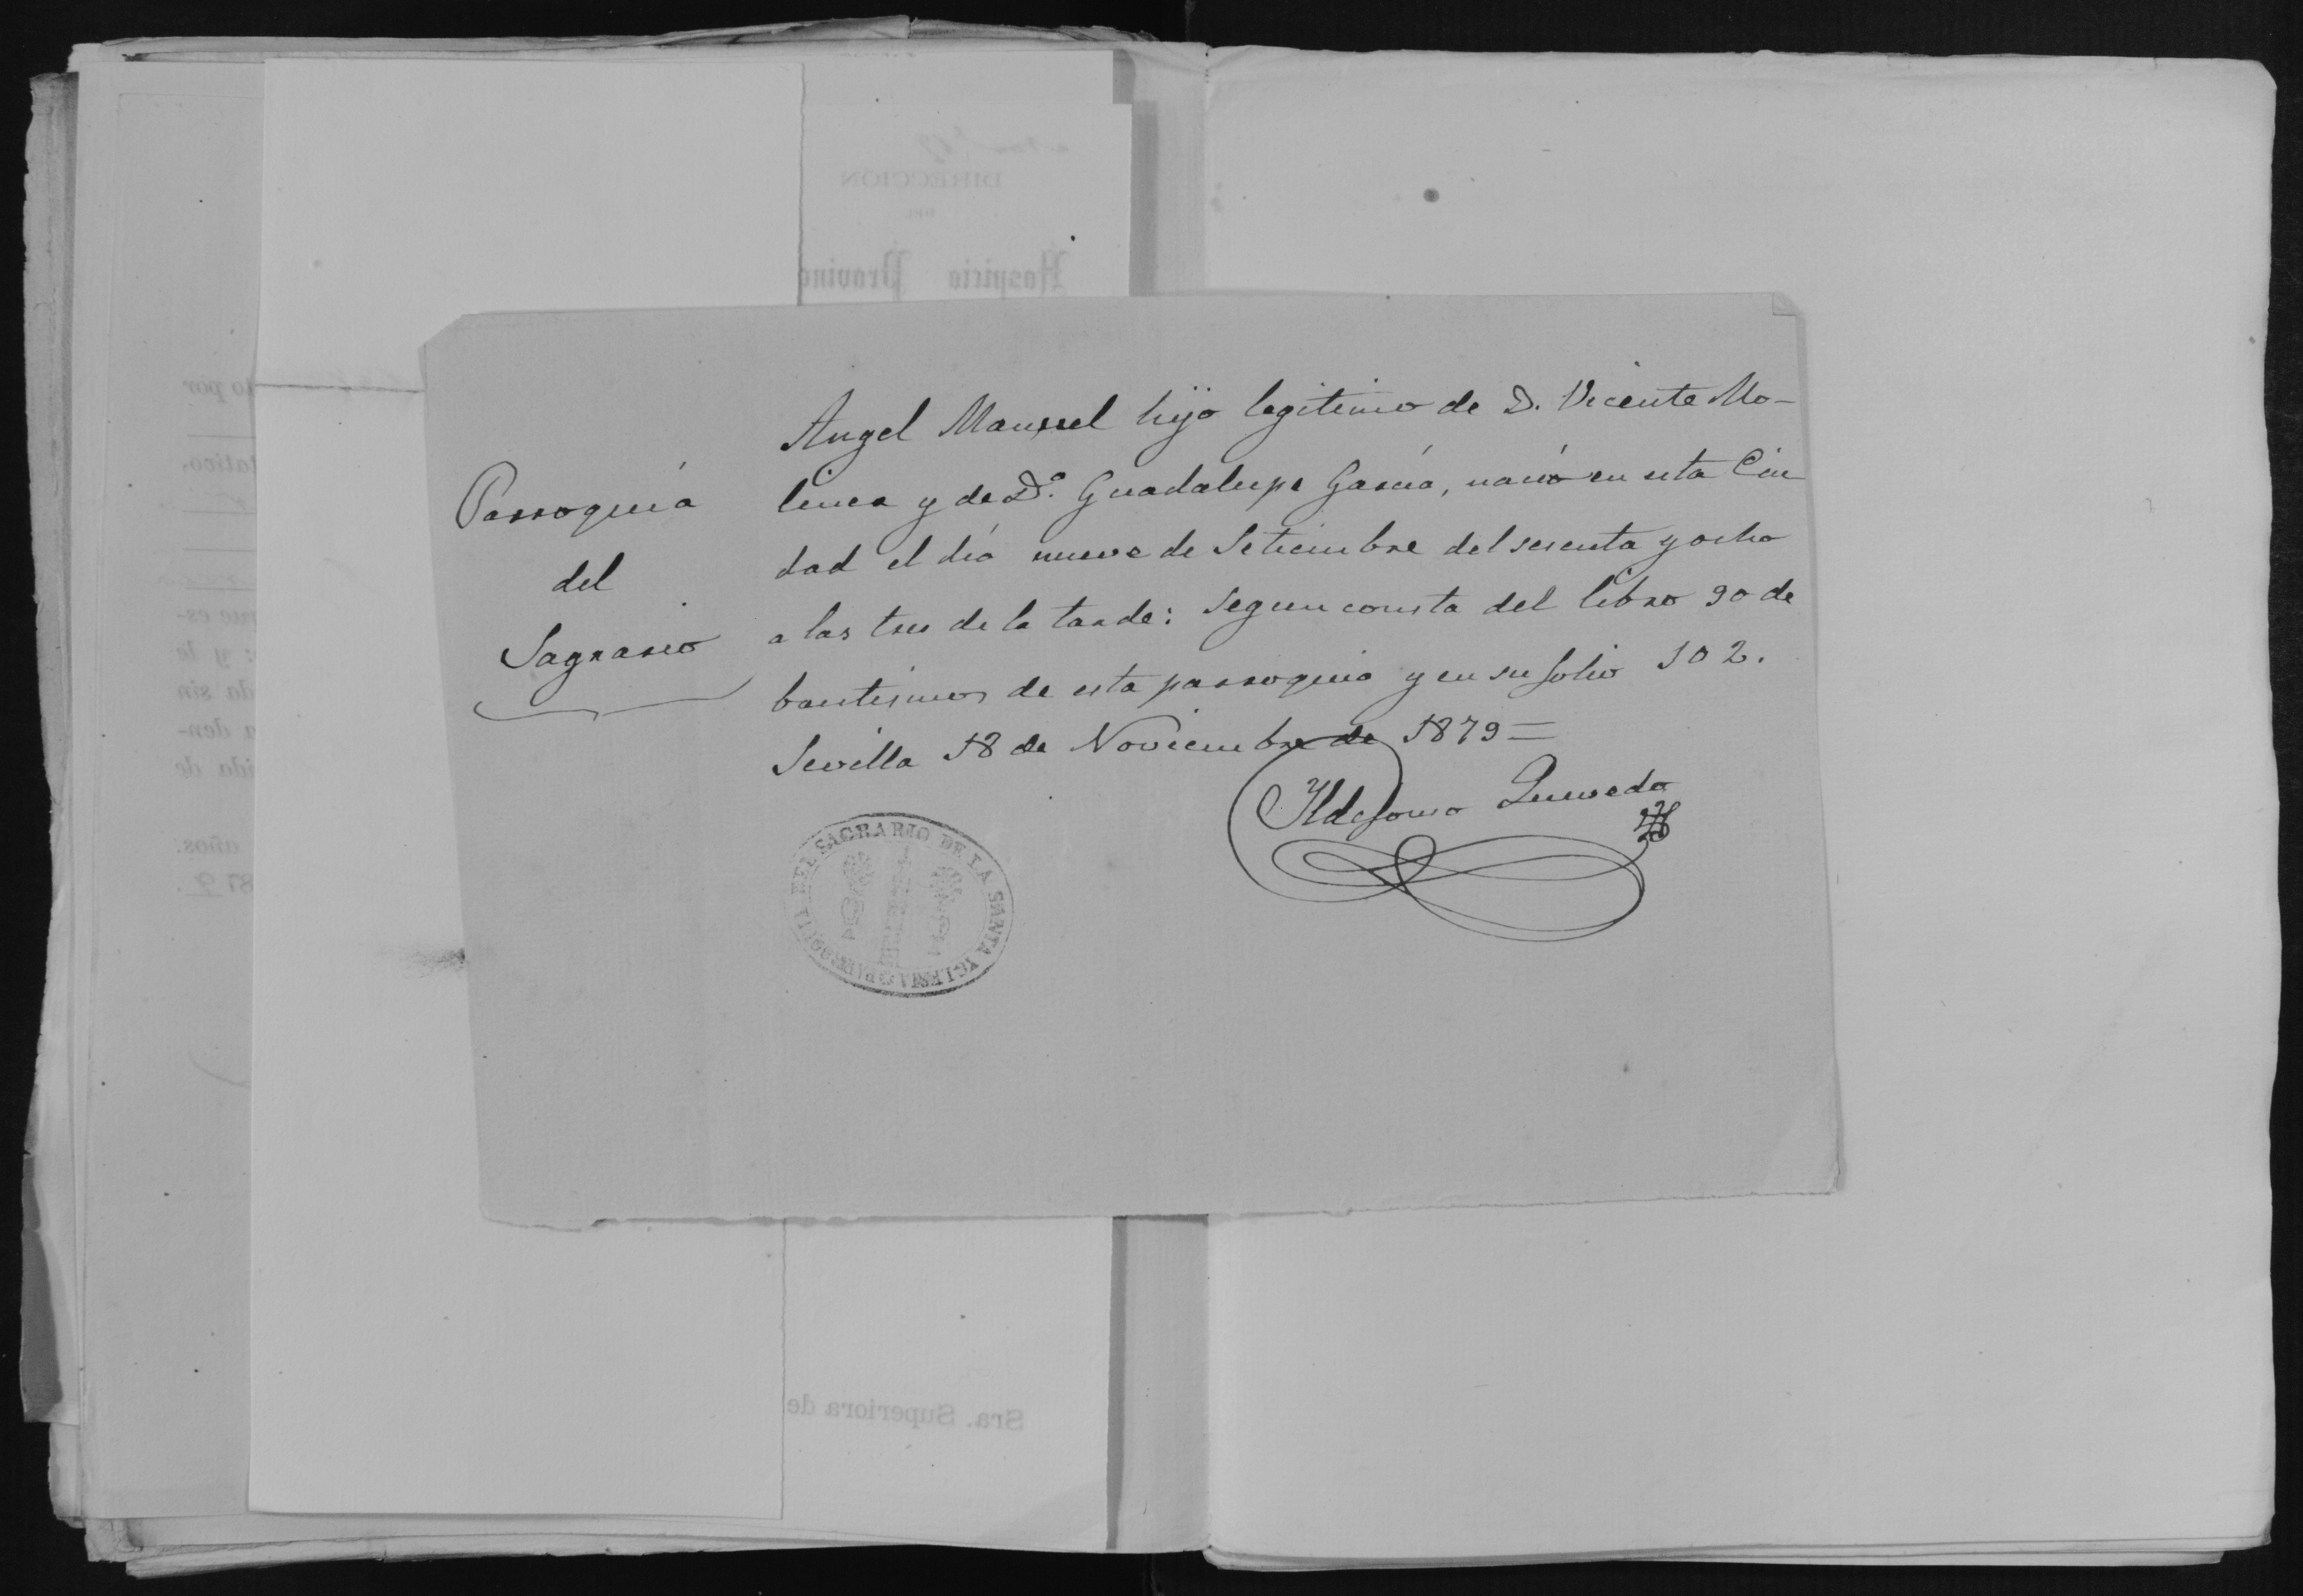 DIRECCION
DEL
Hospicio Provinc
o por
tativo,
que es-
y le
da sin
den-
ida de
años:
187
Parroquia
del
Sagrario
Angel Manuel hijo legitimo de D. Vicente Mo-
linea y de D.ª Guadalupe García, nació en esta Ciu
dad el día nueve de Setiembre del sesenta y ocho
a las tres de la tarde: segun consta del libro 90 de
bautismos de esta parroquia y en su folio 102.
Sevilla 18 de Noviembre de 1879=
Yldefonso Quevedo
PARROQUIA DEL SAGRARIO DE LA SANTA YGLESIA
Sra. Superiora de